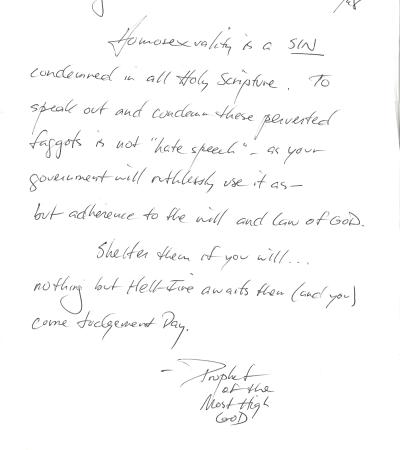 Homosexuality is a SIN
condemned in all Holy Scripture. To
speak out and condemn these perverted
faggots is not "hate speech" - as your
government will ruthlessly use it as -
but adherence to the will and law of GOD.
Shelter them if you will...
nothing but Hell-Fire awaits them (and you)
come Judgement Day.
- Prophet
of the
Most High
GOD